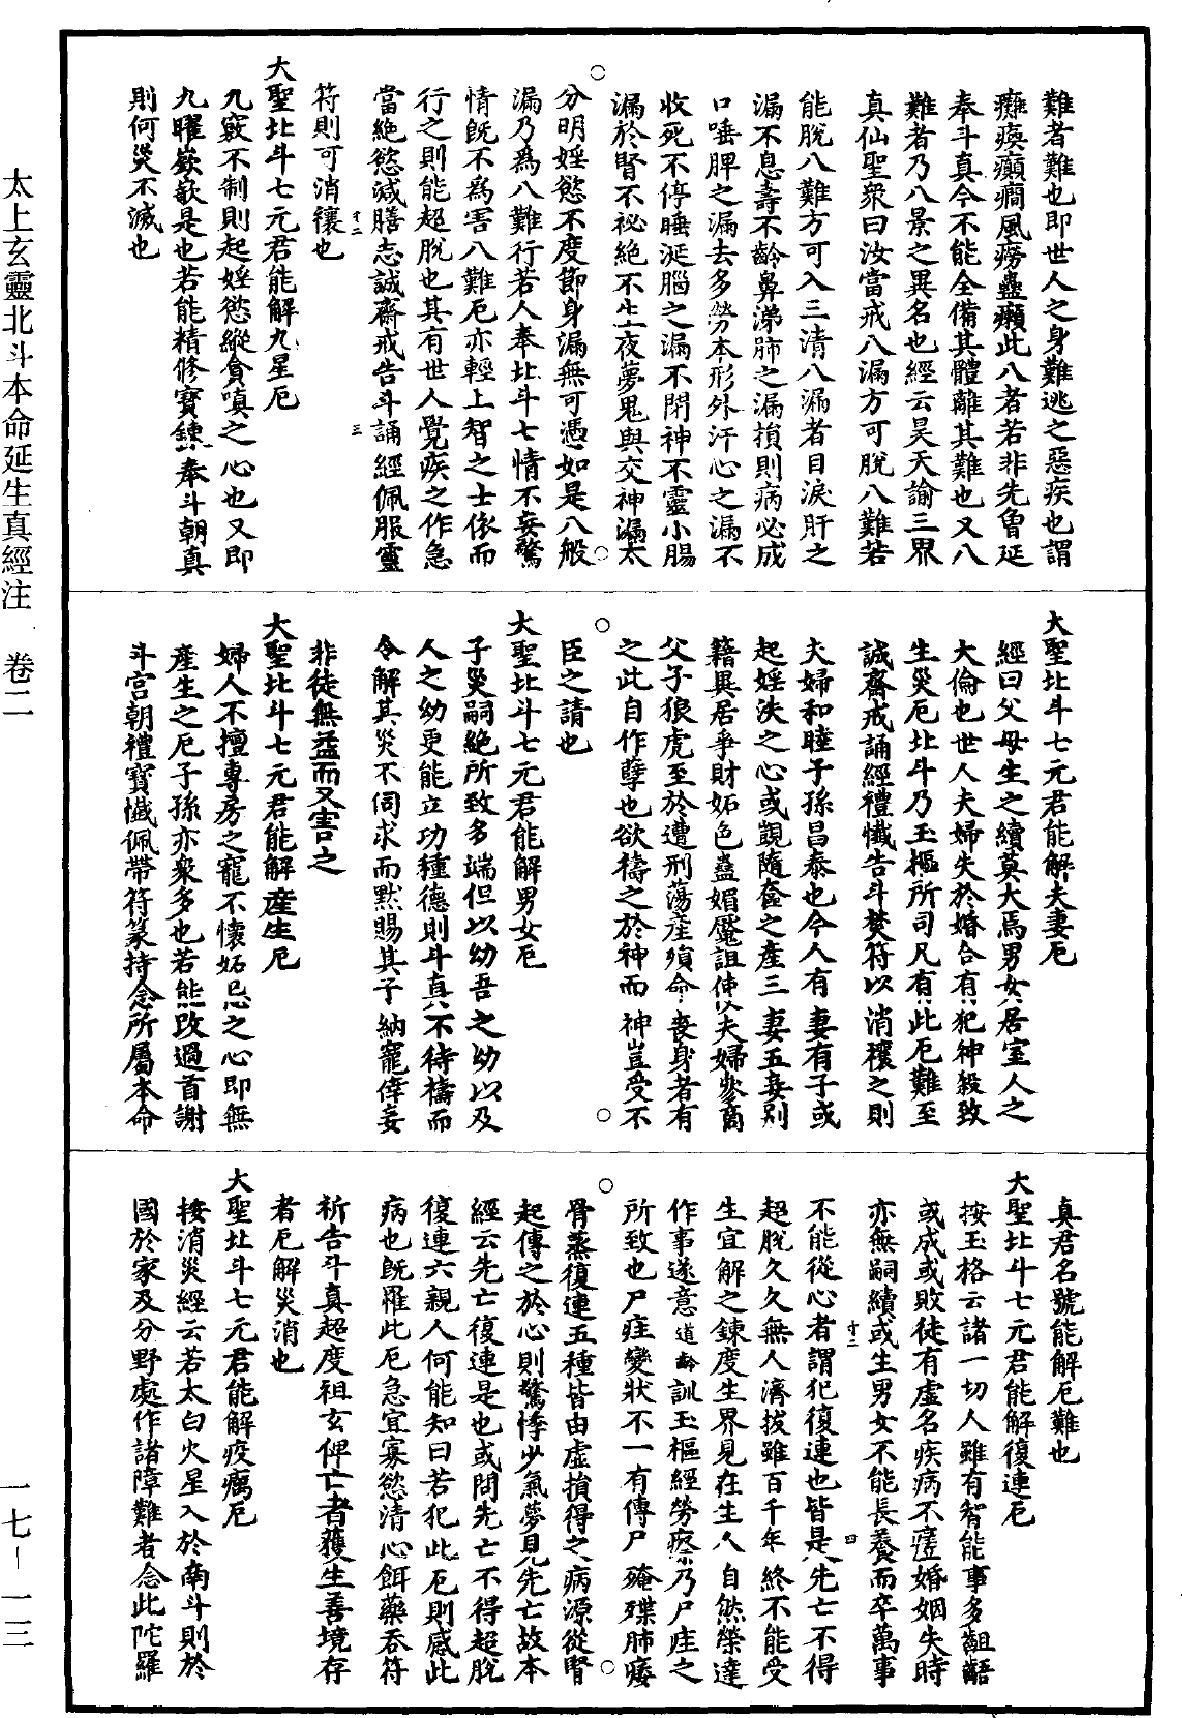 難者難也即世人之身難逃之惡疾也謂
癱瘓癲癎風癆蠱癩此八者若非先曾延
奉斗真今不能全備其體離其難也又八
難者乃八景之異名也經云昊天諭三界
真仙聖衆曰汝當戒八漏方可脫八難若
能脫八難方可入三清八漏者目淚肝之
漏不息壽不齡鼻涕肺之漏損則病必成
口唾脾之漏去多勞本形外汗心之漏不
收死不停睡涎腦之漏不閉神不靈小腸
漏於腎不祕絕不生夜夢鬼與交神漏太
分明婬慾不度節身漏無可憑如是八般
漏乃爲八難行若人奉北斗七情不妄驚
情旣不爲害八難厄亦輕上智之士依而
行之則能超脫也其有世人覺疾之作急
當絕慾減膳志誠齋戒告斗誦經佩服靈
符則可消禳也
大聖北斗七元君能解九星厄
九竅不制則起婬慾縱貪嗔之心也又即
九曜嶔欹是也若能精修寳鍊奉斗朝真
則何災不滅也
大聖北斗七元君能解夫妻厄
經曰父母生之續莫大焉男女居室人之
大倫也世人夫婦失於婚合有犯神殺致
生災厄北斗乃玉樞所司凡有此厄難至
誠齋戒誦經禮懺告斗焚符以消禳之則
夫婦和睦子孫昌泰也今人有妻有子或
起婬泆之心或覬隨奩之產三妻五妾别
籍異居爭財妬色蠱媚魘詛使夫婦參商
父子狼虎至於遭刑蕩產殞命喪身者有
之此自作孽也欲禱之於神而神豈受不
臣之請也
大聖北斗七元君能解男女厄
子災嗣絕所致多端但以幼吾之幼以及
人之幼更能立功種德則斗真不待禱而
令解其災不伺求而默賜其子納寵倖妾
非徒無益而又害之
大聖北斗七元君能解產生厄
婦人不擅專房之寵不懷妬忌之心即無
產生之厄子孫亦衆多也若能改過首謝
斗宫朝禮寳懺佩帶符篆持念所屬本命
真君名號能解厄難也
大聖北斗七元君能解復連厄
按玉格云諸一切人雖有智能事多齟齬
或成或敗徒有虛名疾病不瘥婚姻失時
亦無嗣續或生男女不能長養而卒萬事
不能從心者謂犯復連也皆是先亡不得
超脫久久無人濟拔雖百千年終不能受
生宜解之鍊度生界見在生人自然榮達
作事遂意道齡訓玉樞經勞瘵乃尸疰之
所致也尸疰變狀不一有傳尸殗殜肺痿
骨蒸復連五種皆由虛損得之病源從腎
起傳之於心則驚悸少氣夢見先亡故本
經云先亡復連是也或問先亡不得超脫
復連六親人何能知曰若犯此厄則感此
病也旣罹此厄急宜寡慾清心餌藥吞符
祈告斗真超度祖玄俾亡者獲生善境存
者厄解災消也
大聖北斗七元君能解疫癘厄
按消災經云若太白火星入於南斗則於
國於家及分野處作諸障難者念此陀羅
太上玄靈北斗本命延生真經注　卷二
一七－一三